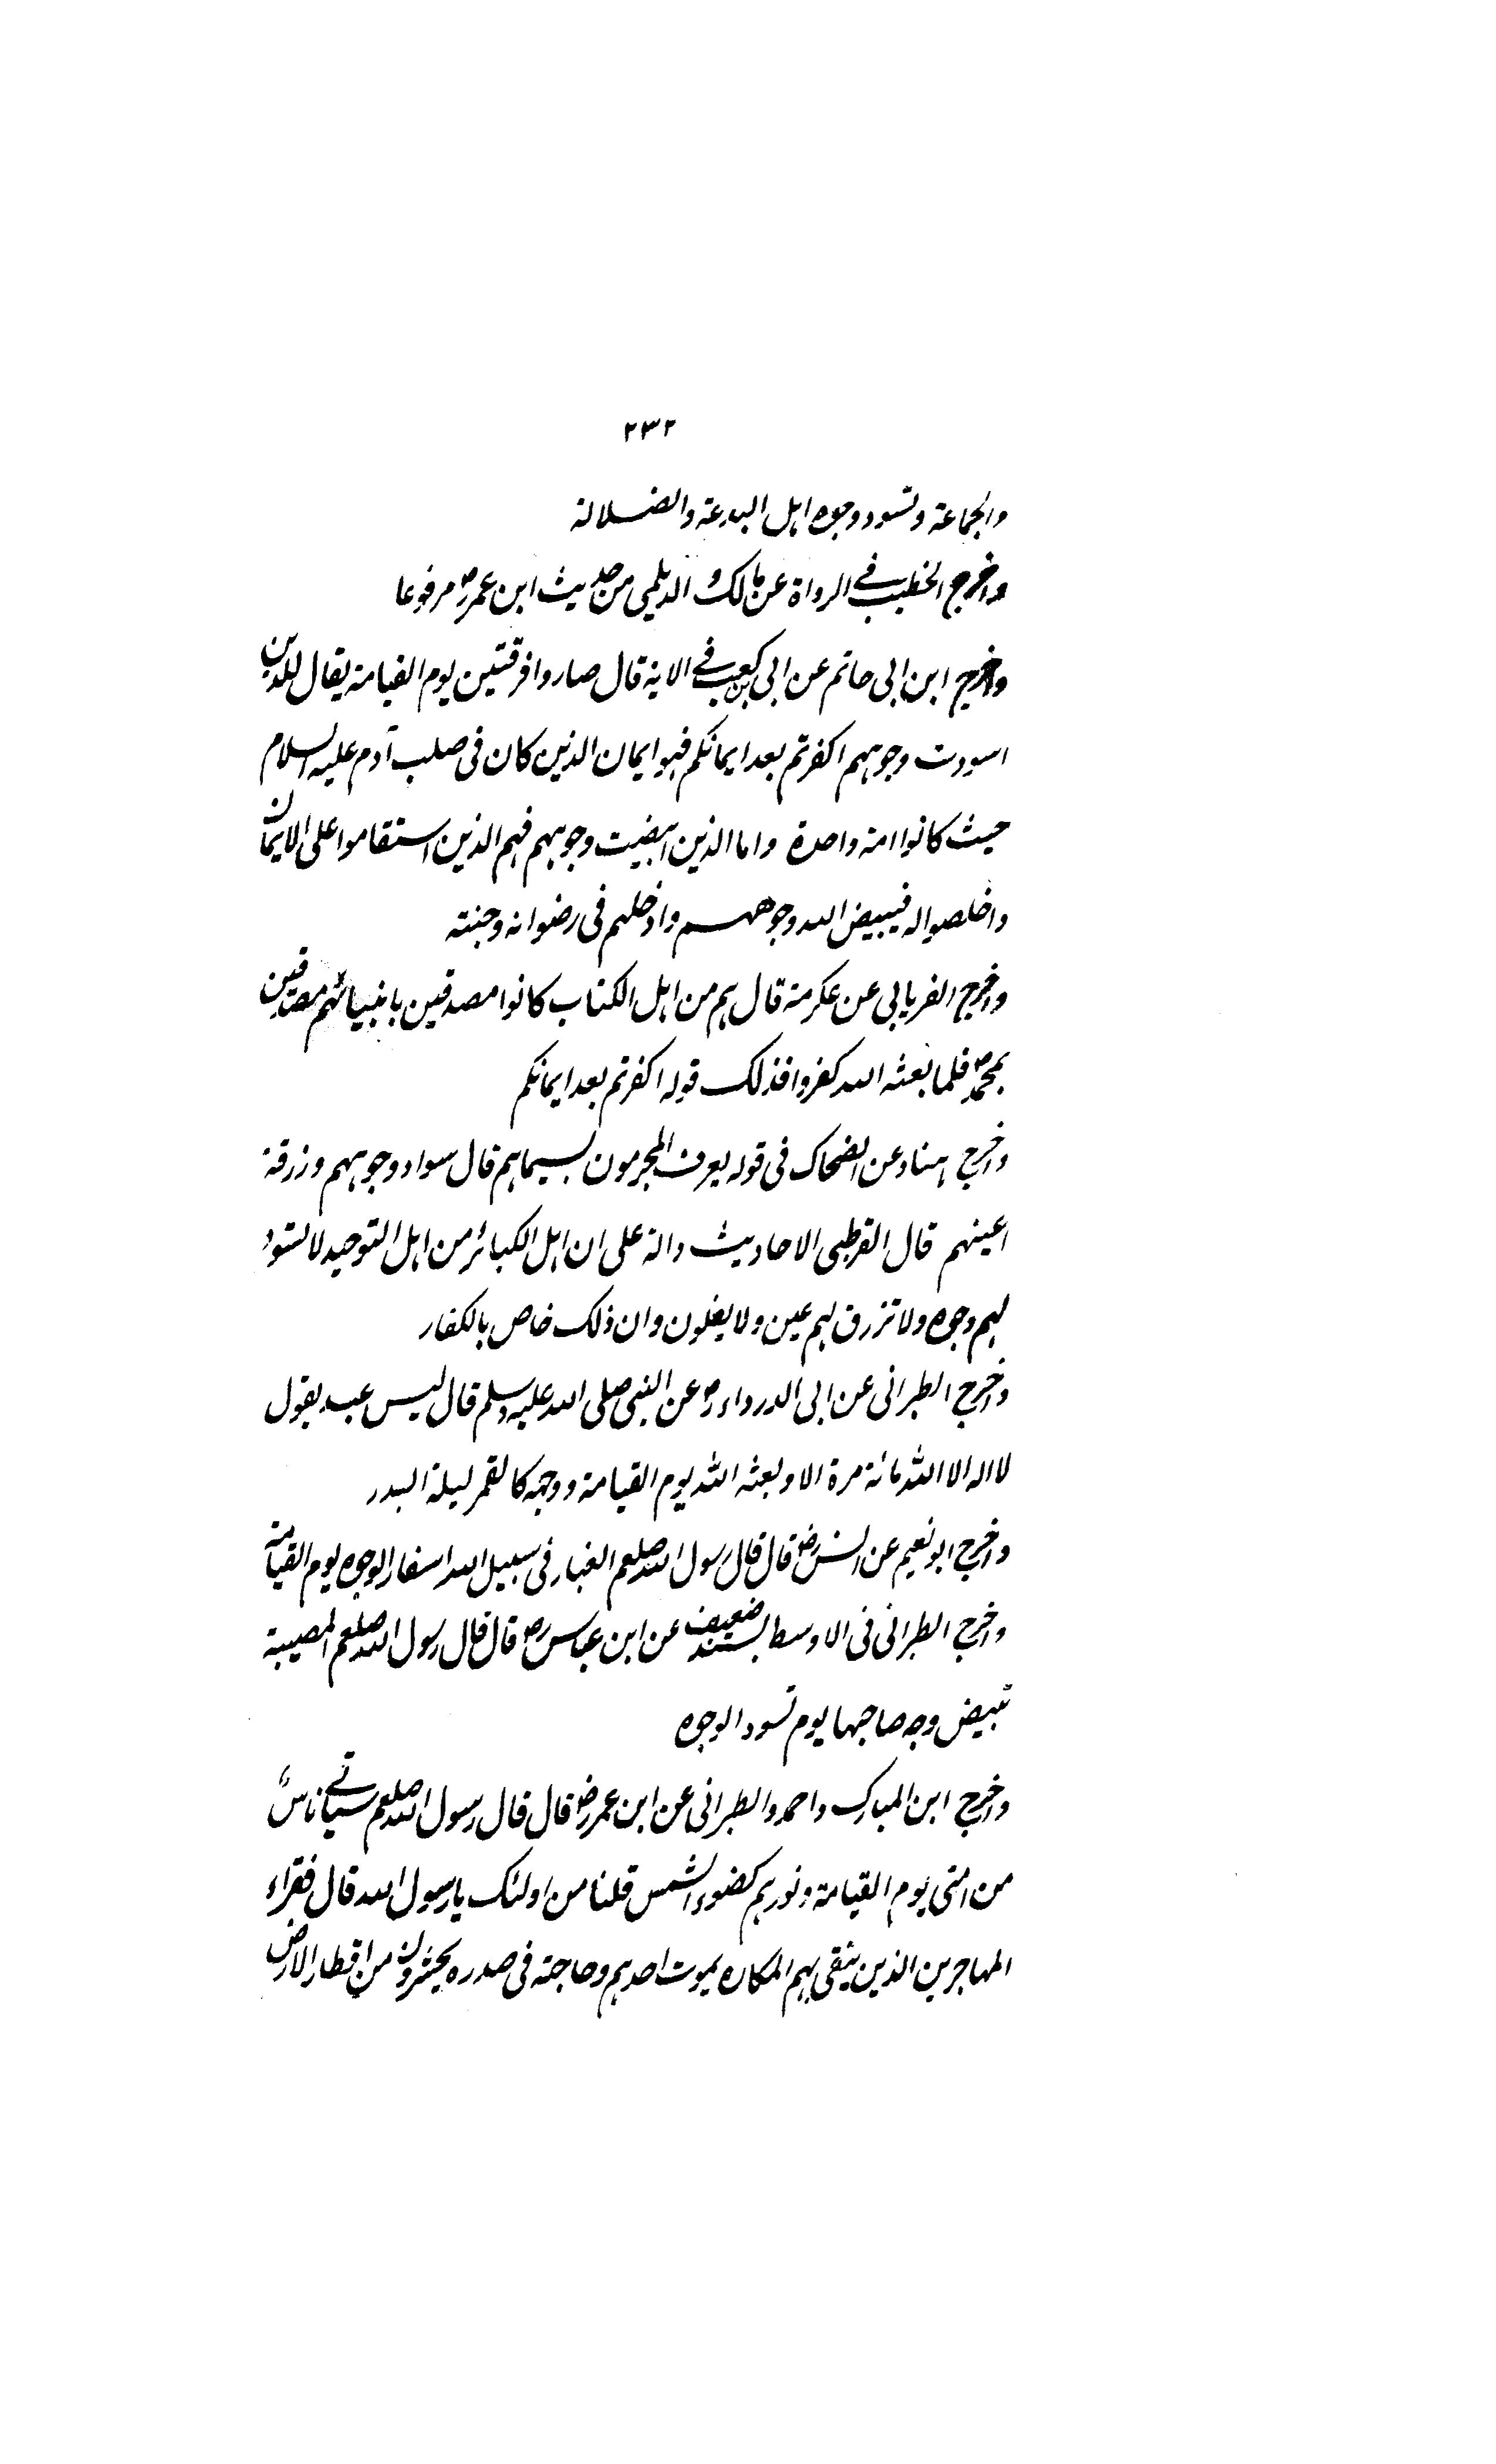 ٢٣٢
والجماعة وتسود وجوه اهل البدعة والضلالة
واخرج الخطيب في الرواة عن مالك والديلمي من حديث ابن عمر رض مرفوعا
واخرج ابن ابى حاتم عن ابى بن كعب في الاية قال صاروا فرقتين يوم القيامة يقال للذين
اسودت وجوههم اكفرتم بعد ايمانكم فهو ايمان الذين كان فى صلب آدم عليه السلام
حيث كانوا امة واحدة واما الذين ابيضت وجوههم فهم الذين استقاموا على الايمان
واخلصوا له فيبيض الله وجوههم وادخلهم فى رضوانه وجنته
واخرج الفريابى عن عكرمة قال هم من اهل الكتاب كانوا مصدقين بانبيائهم مصدقين
بمحمد ص فلما بعثه الله كفروا فذلك قوله اكفرتم بعد ايمانكم
واخرج هناد عن الضحاك فى قوله يعرف المجرمون بسيماهم قال سواد وجوههم وزرقة
اعينهم قال القرطبى الاحاديث دالة على ان اهل الكبائر من اهل التوحيد لا تسود
لهم وجوه ولا تزرق لهم عين ولا يغلون وان ذلك خاص بالكفار
واخرج الطبرانى عن ابى الدرداء رض عن النبى صلى الله عليه وسلم قال ليس عبد يقول
لا اله الا الله مائة مرة الا وبعثه الله يوم القيامة ووجهه كالقمر ليلة البدر
واخرج ابو نعيم عن انس رض قال قال رسول الله صلعم الغبار فى سبيل الله اسفار الوجوه يوم القيامة
واخرج الطبرانى فى الاوسط بسند ضعيف عن ابن عباس رض قال قال رسول الله صلعم المصيبة
تبيض وجه صاحبها يوم تسود الوجوه
واخرج ابن المبارك واحمد والطبرانى عن ابن عمر رض قال قال رسول الله صلعم سياتي ناسٌ
من امتى يوم القيامة ونورهم كضوء الشمس قلنا من اولئك يا رسول الله قال فقراء
المهاجرين الذين يتقى بهم المكاره يموت احدهم وحاجته فى صدره يحشرون من اقطار الارض